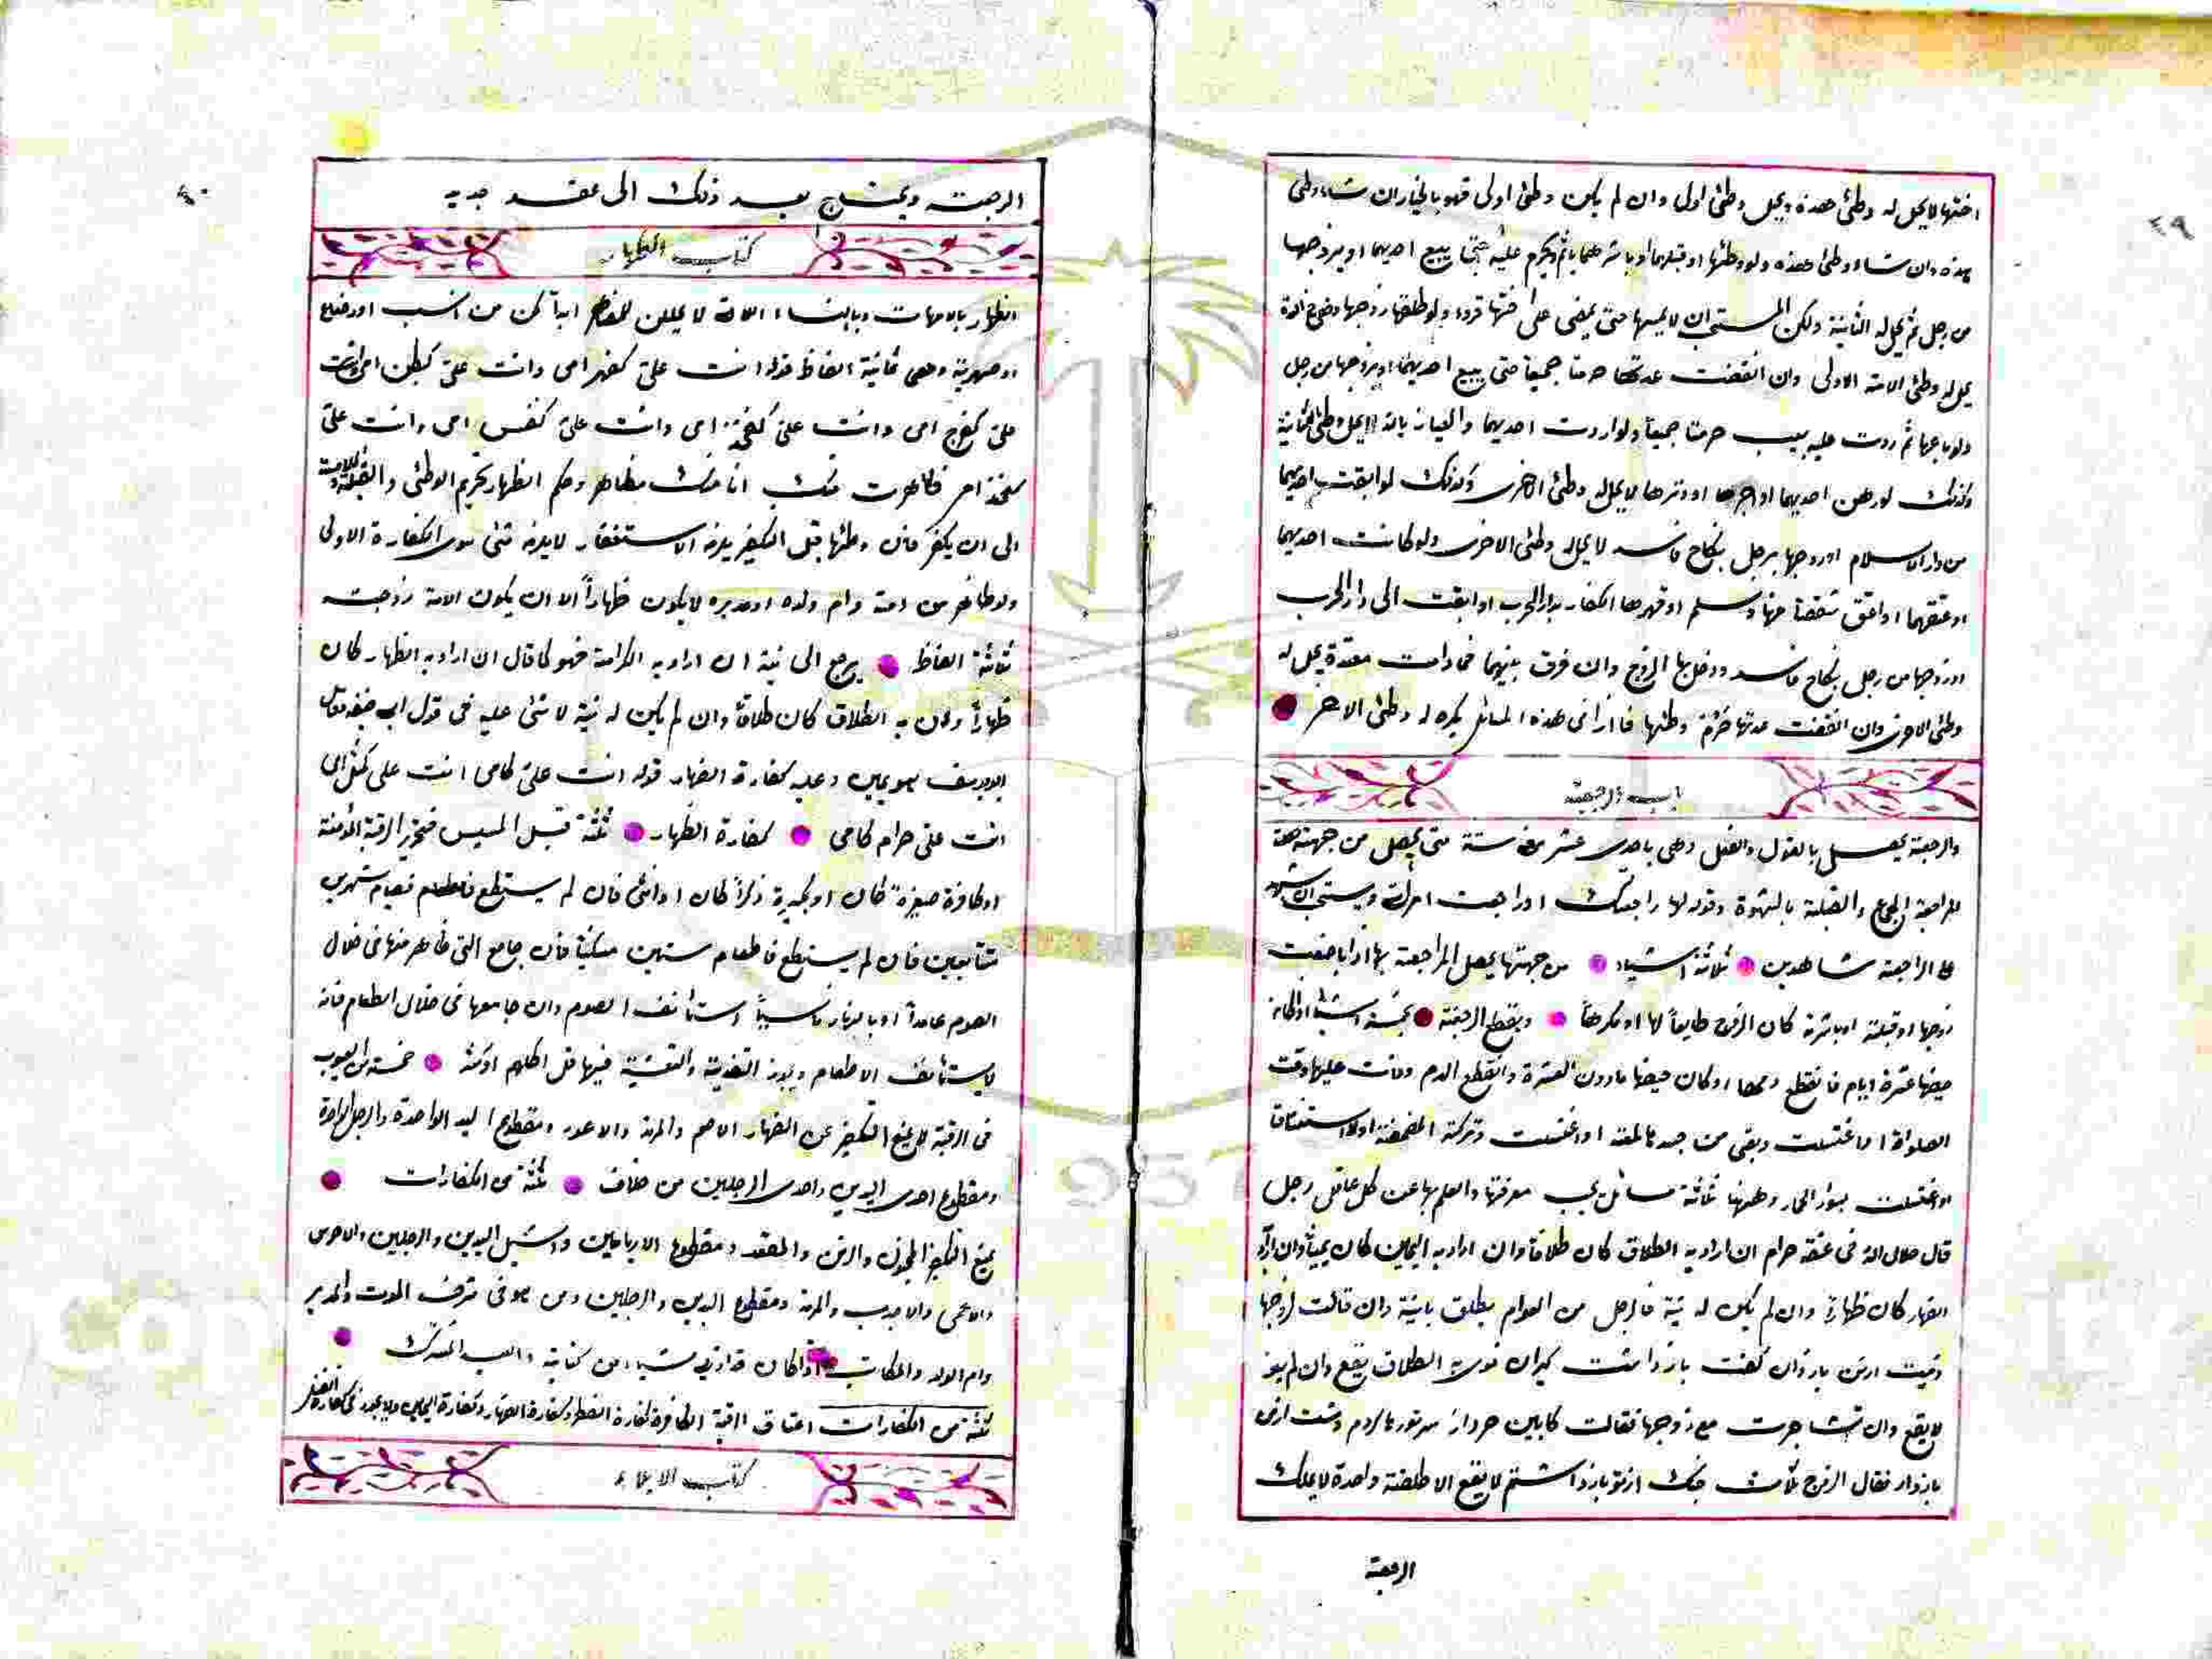 ٤٩
اختها لا يحل له وطئ هذه ويحل وطئ اولى وان لم يكن وطئ اولى فهو بالخيار ان شاء وطئ
هذه وان شاء وطئ هذه ولو وطئها او قبلهما او باشرهما يأثم ويحرم عليه حتى يبيع احديهما او يزوجها
من رجل ثم يحل له الثانية ولكن المستحب ان لا يمسها حتى يمضى على اختها قرؤ ولو طلقها زوجها
يحل له وطئ الامة الاولى وان انقضت عدتها حرمتا جميعاً حتى يبيع احديهما او يزوجها من رجل
ولو باعها ثم ردت عليه بعيب حرمتا جميعاً ولو ارتدت احديهما والعياذ بالله لا يحل وطئ الثانية
وكذلك لو رهن احديهما او اجرها او دبرها لا يحل له وطئ الاخرى وكذلك لو ابقت احديهما
من دار الاسلام او زوجها برجل بنكاح فاسد لا يحل له وطئ الاخرى ولو كانت احديهما
او عتقهما او اعتق شقصاً منها وسلم او قهرها الكفار بدار الحرب او ابقت الى دار الحرب
او زوجها من رجل بنكاح فاسد ودخل بها الزوج وان فرق بينهما فما دامت معتدة يحل له
وطئ الاخرى وان انقضت عدتها حرم وطئها فاذا فى هذه المسائل يكره له وطئ الاخر
باب الرجعة
والرجعة يحصل بالقول والفعل وهى باحدى عشر ستة متى يحصل من جهته صحة
المراجعة الجماع والقبلة بالشهوة وقوله لها راجعتك او راجعت امرأتى ويستحب ان يشهد
على الراجعة شاهدين ثلاثة اشياء من جهتها يحصل المراجعة بها اذا
زوجها او قبلته او باشرته كان الزوج طايعاً لها او مكرهاً وينقطع الرجعة بخمسة اشياء اذا كانه
حيضها عشرة ايام فانقطع دمها او كان حيضها ما دون العشرة وانقطع الدم وفات عليها وقت
الصلواة او اغتسلت وبقى من جسدها لمعة او اغتسلت وتركته المضمضة او الاستنشاق
او اغتسلت بسؤر الحمار وههنا ثلاثة مسائل يجب معرفتها والعلم بها عن كل عاقل رجل
قال حلال الله فى عنقه حرام ان اراد به الطلاق كان طلاقاً وان اراد به اليمين كان يميناً وان اراد
الظهار كان ظهاراً وان لم يكن له نية فالرجل من العوام يطلق باينة وان قالت لزوجها
دست از من بازدان گفت باز داشته كيران نوى به الطلاق يقع وان لم ينو
لا يقع وان تشاجرت مع زوجها فقالت كابين هزار سر تو رها كردم دست از من
بازدار فقال الزوج ثلاث جنك از تو باز داشتم لا يقع الا طلقة واحدة لا يملك
الرجعة
٤٠
الرجعت ويحتاج بعد ذلك الى عقد جديد
كتاب الظهار
الظهار بالامهات وبالنساء اللاتى لا يحللن ابداً كن من نسب او رضاع
او صهرية وهى ثمانية الفاظ قوله انت على كظهر امى وانت على كبطن امى وانت
على كفرج امى وانت على كفخذ امى وانت على كنفس امى وانت على
كفخذ امى ظاهرت منك انا منك مظاهر وحكم الظهار تحريم الوطئ والقبلة
الى ان يكفر فان وطئها قبل التكفير يلزمه الاستغفار لا يلزمه شئ سوى الكفارة الاولى
ولو ظاهر من امته وام ولده او مدبره لا يكون ظهاراً الا ان يكون الامة زوجت
ثلثة الفاظ يرجع الى نية ان اراد به الكرامة فهو كما قال ان اراد به الظهار كان
ظهاراً وان به الطلاق كان طلاقاً وان لم يكن له نية لا شئ عليه فى قول ابى حنيفة وقال
ابو يوسف هو يمين وعليه كفارة الظهار قوله انت على كامى انت على كمثل امى
انت على حرام كامى كفارة الظهار ثلثة قبل المسيس فتحرير الرقبة المؤمنة
او كافرة صغيرة كان او كبيرة ذكراً كان او انثى فان لم يستطع فصيام شهرين
متتابعين فان لم يستطع فاطعام ستين مسكيناً فان جامع التى ظاهر منها فى خلال
الصوم عامداً او بالنهار ناسياً استأنف الصوم وان جامعها فى خلال الطعام فانه
لا يستأنف الاطعام ويجوز التغدية والتعشية فيها قل اكلهم او كثر خمسة من العيوب
فى الرقبة لا يمنع التكفير عن الظهار الاصم والمرتد والاعور ومقطوع اليد الواحدة والرجل الواحدة
ومقطوع احدى اليدين واحدى الرجلين من خلاف ثلثة من الكفارات
يمنع التكفير المجنون والزمن والمقعد ومقطوع الابهامين واشل اليدين والرجلين والاخرس
والاعمى والاجدب والمرتد ومقطوع اليدين والرجلين ومن هو فى نزف الموت والمدبر
وام الولد والمكاتب اذا كان قد ادى شيئاً من كتابته والعبد المشترك
ثلثة من الكفارات اعتاق الرقبة الكافرة كفارة الفطر وكفارة الظهار وكفارة اليمين ولا يجوز فى كفارة القتل
كتاب الايماء